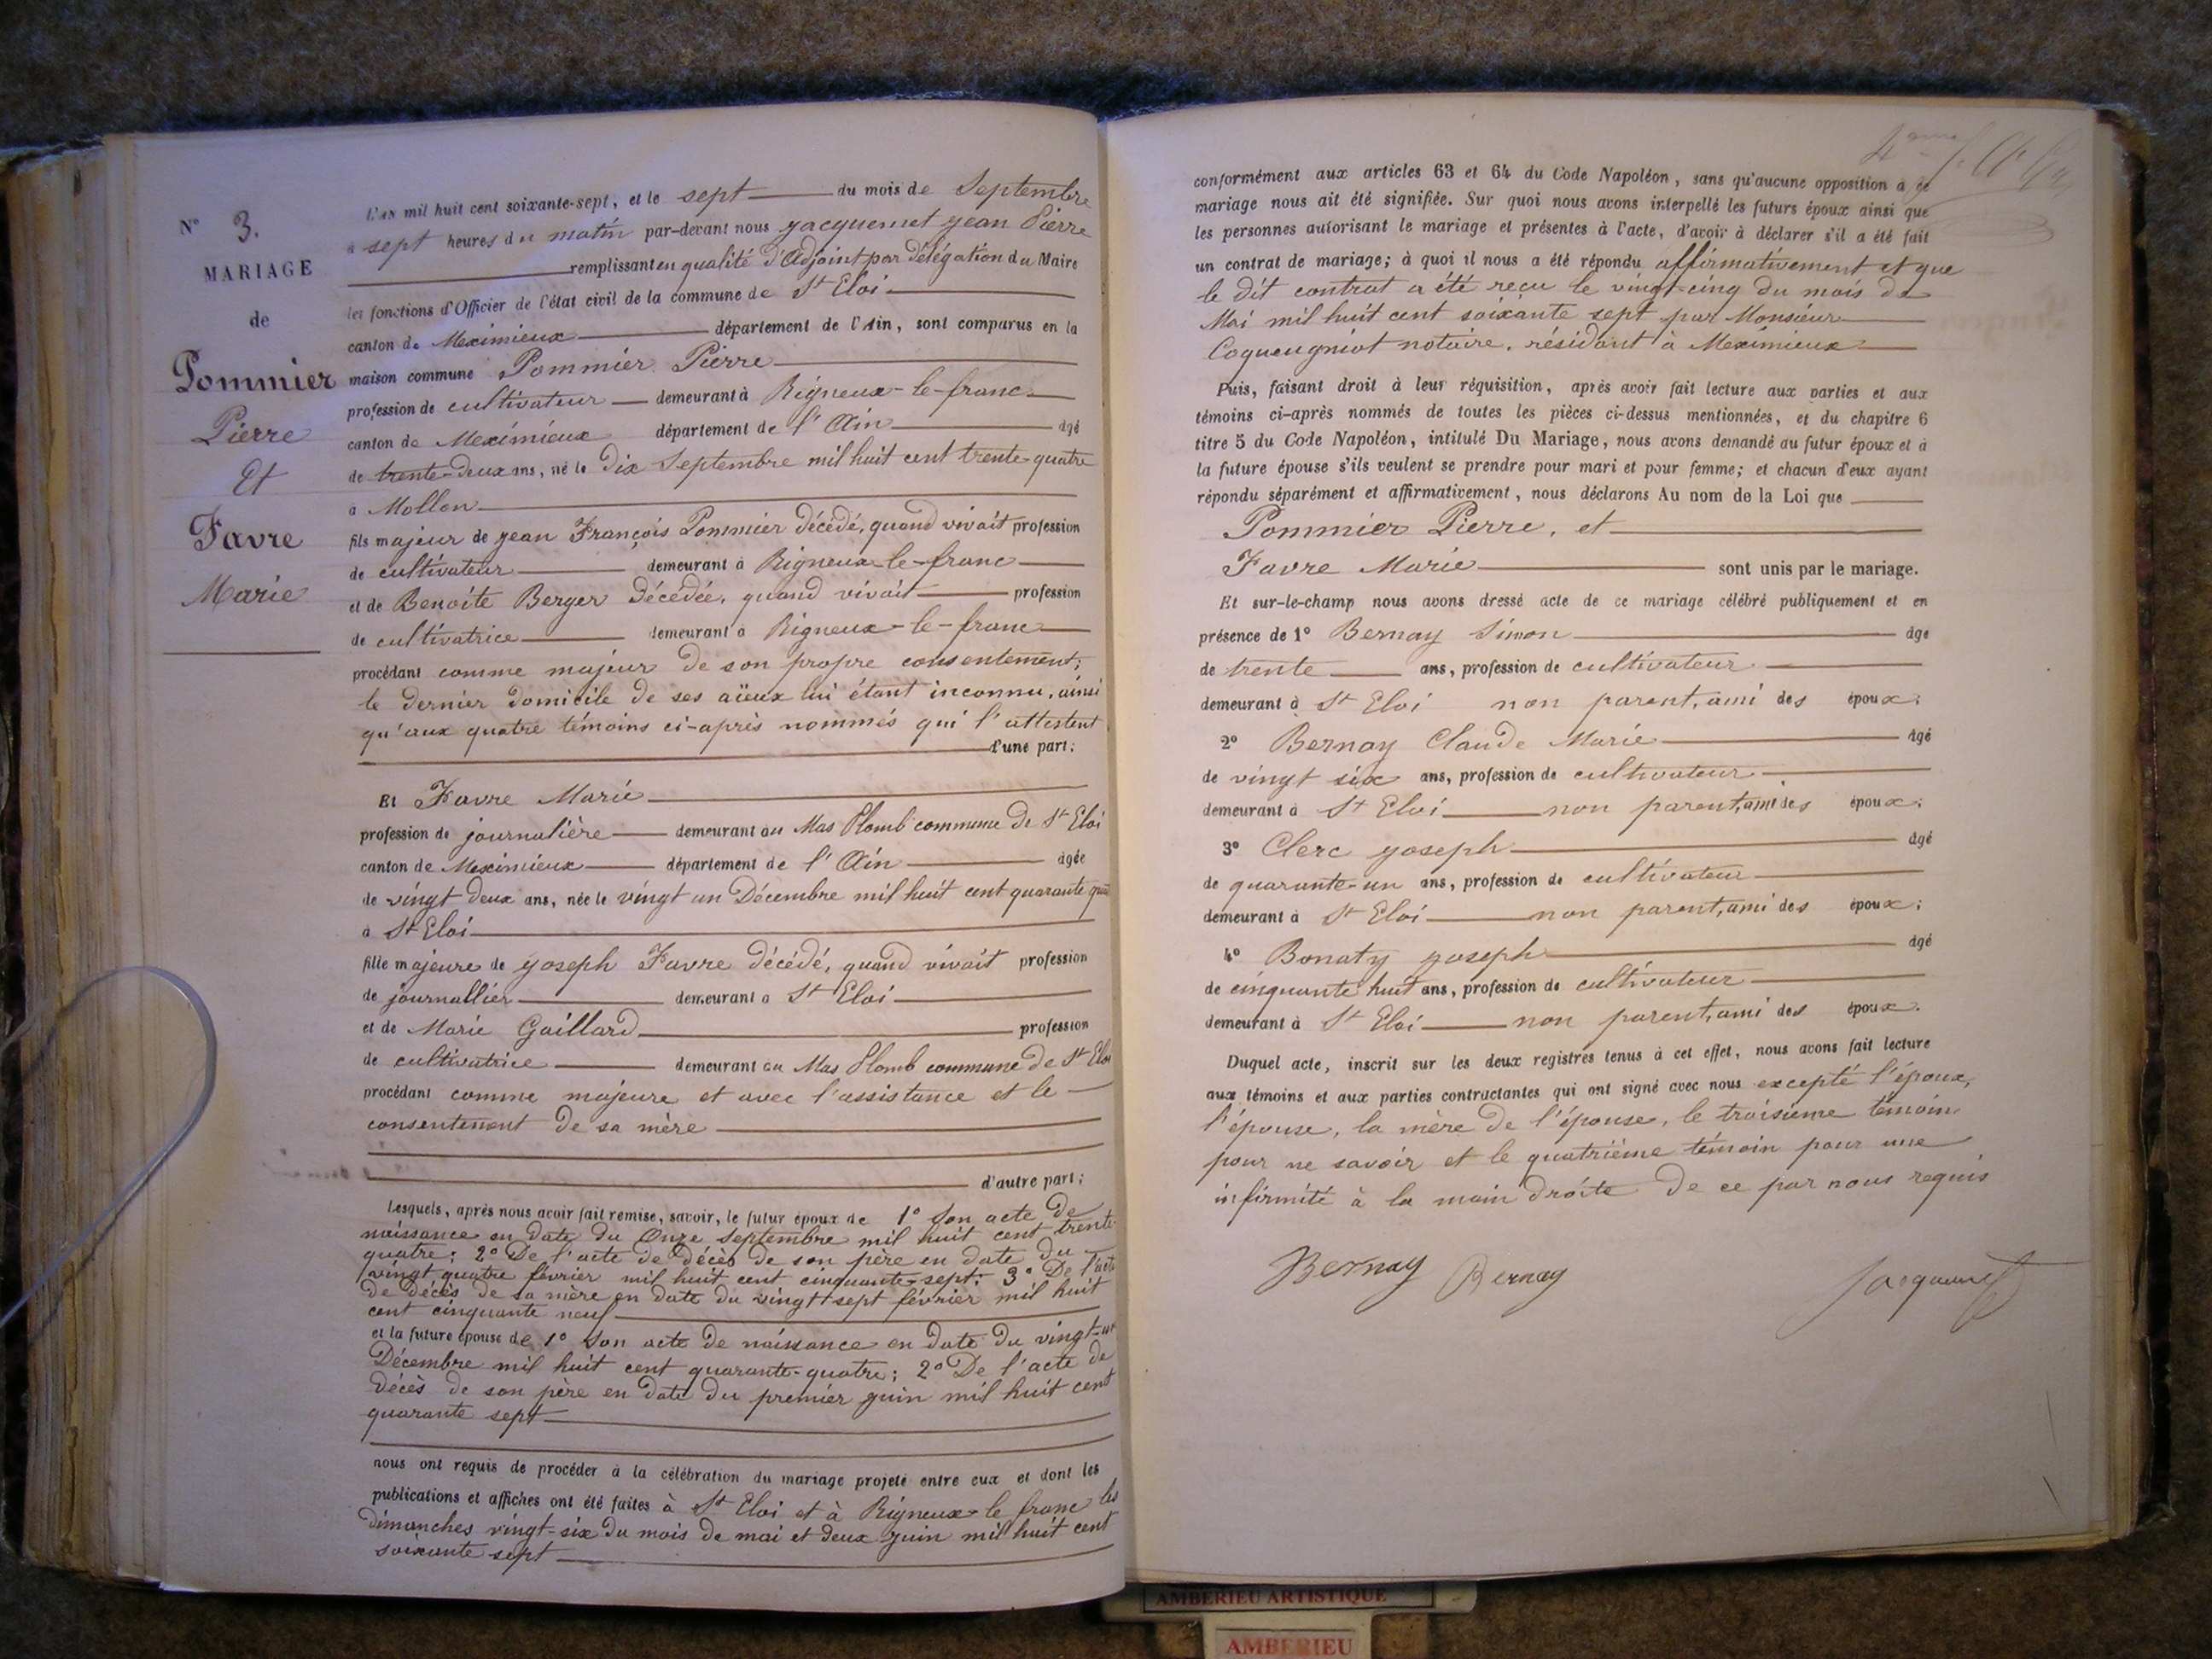 N° 3.
MARIAGE
de
Pommier
Pierre
Et
Favre
Marie
L'an mil huit cent soixante-sept, et le sept du mois de Septembre
à sept heures du matin par-devant nous Jacquemet Jean Pierre
remplissant en qualité d'Adjoint par délégation du Maire
les fonctions d'Officier de l'état civil de la commune de St Eloi
canton de Meximieux département de l'Ain, sont comparus en la
maison commune Pommier Pierre
profession de cultivateur demeurant à Rigneux-le-franc
canton de Meximieux département de l'Ain âgé
de trente-deux ans, né le Dix Septembre mil huit cent trente-quatre
à Mollon
fils majeur de Jean François Pommier décédé, quand vivait profession
de cultivateur demeurant à Rigneux-le-franc
et de Benoîte Berger décédée, quand vivait profession
de cultivatrice demeurant à Rigneux-le-franc
procédant comme majeur de son propre consentement;
le dernier domicile de ses aïeux lui étant inconnu, ainsi
qu'aux quatre témoins ci-après nommés qui l'attestent
d'une part;
Et Favre Marie
profession de journalière demeurant au Mas Plomb commune de St Eloi
canton de Meximieux département de l'Ain âgée
de vingt deux ans, née le vingt un Décembre mil huit cent quarante
à St Eloi
fille majeure de Joseph Favre décédé, quand vivait profession
de journallier demeurant à St Eloi
et de Marie Gaillard profession
de cultivatrice demeurant au Mas Plomb commune de St Eloi
procédant comme majeure et avec l'assistance et le
consentement de sa mère
d'autre part;
Lesquels, après nous avoir fait remise, savoir, le futur époux de 1° Son acte de
naissance en date du Onze Septembre mil huit cent trente
quatre; 2° De l'acte de décès de son père en date du
vingt quatre février mil huit cent cinquante-sept; 3° De l'acte
de décès de sa mère en date du vingt sept février mil huit
cent cinquante neuf
et la future épouse de 1° Son acte de naissance en date du vingt-un
Décembre mil huit cent quarante-quatre; 2° De l'acte de
décès de son père en date du premier juin mil huit cent
quarante sept
nous ont requis de procéder à la célébration du mariage projeté entre eux et dont les
publications et affiches ont été faites à St Eloi et à Rigneux-le franc les
dimanches vingt-six du mois de mai et deux juin mil huit cent
soixante sept
conformément aux articles 63 et 64 du Code Napoléon, sans qu'aucune opposition à ce
mariage nous ait été signifiée. Sur quoi nous avons interpellé les futurs époux ainsi que
les personnes autorisant le mariage et présentes à l'acte, d'avoir à déclarer s'il a été fait
un contrat de mariage; à quoi il nous a été répondu affirmativement et que
le dit contrat a été reçu le vingt-cinq du mois de
Mai mil huit cent soixante sept par Monsieur
Coqueugniot notaire, résidant à Meximieux
Puis, faisant droit à leur réquisition, après avoir fait lecture aux parties et aux
témoins ci-après nommés de toutes les pièces ci-dessus mentionnées, et du chapitre 6
titre 5 du Code Napoléon, intitulé Du Mariage, nous avons demandé au futur époux et à
la future épouse s'ils veulent se prendre pour mari et pour femme; et chacun d'eux ayant
répondu séparément et affirmativement, nous déclarons Au nom de la Loi que
Pommier Pierre, et
Favre Marie sont unis par le mariage.
Et sur-le-champ nous avons dressé acte de ce mariage célébré publiquement et en
présence de 1° Bernay Simon âgé
de trente ans, profession de cultivateur
demeurant à St Eloi non parent, ami des époux;
2° Bernay Claude Marie âgé
de vingt six ans, profession de cultivateur
demeurant à St Eloi non parent, ami des époux;
3° Clerc Joseph âgé
de quarante-un ans, profession de cultivateur
demeurant à St Eloi non parent, ami des époux;
4° Bonaty Joseph âgé
de cinquante huit ans, profession de cultivateur
demeurant à St Eloi non parent, ami des époux.
Duquel acte, inscrit sur les deux registres tenus à cet effet, nous avons fait lecture
aux témoins et aux parties contractantes qui ont signé avec nous excepté l'époux,
l'épouse, la mère de l'épouse, le troisième témoin
pour ne savoir et le quatrième témoin pour une
infirmité à la main droite de ce par nous requis
Bernay Bernay Jacquemet
AMBERIEU ARTISTIQUE
AMBERIEU